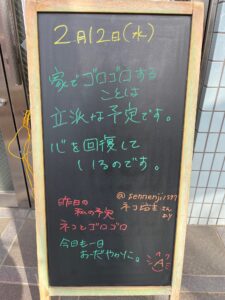 2月12日(水)
家でゴロゴロする
ことは
立派な予定です。
心を回復して
いるのです。
@sennenji597
ネコ坊主さん
より
昨日の
私の予定
ネコとゴロゴロ
今日も一日
おだやかに。